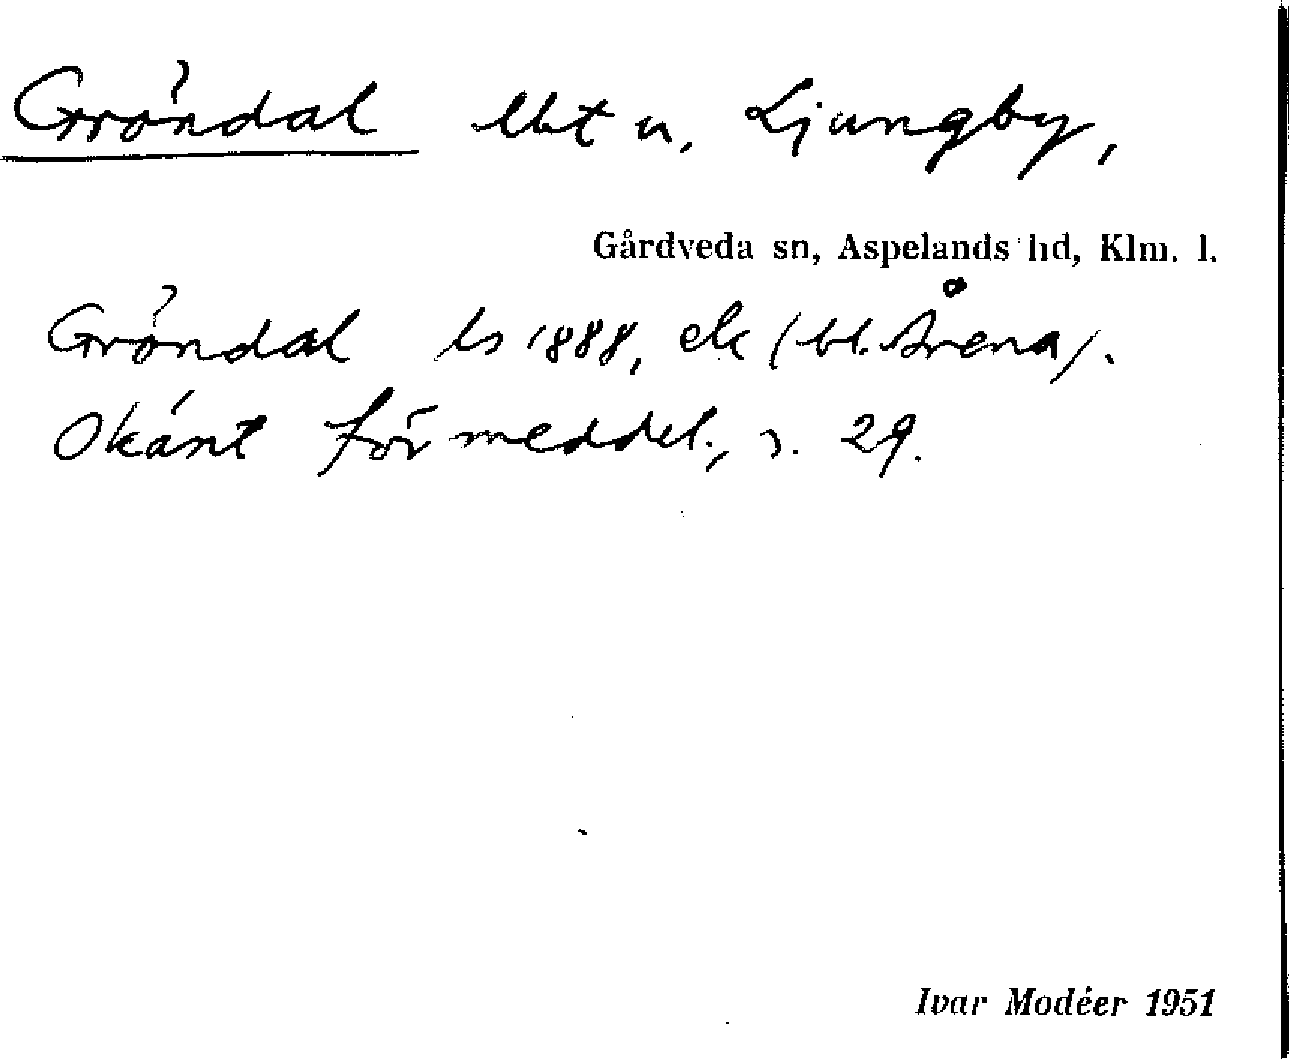 Gröndal lht u. Ljungby,
Gårdveda sn, Aspelands hd, Klm. l.
Gröndal ls 1888, ek (bl. Årena).
Okänt för meddel., s. 29.
Ivar Modéer 1951